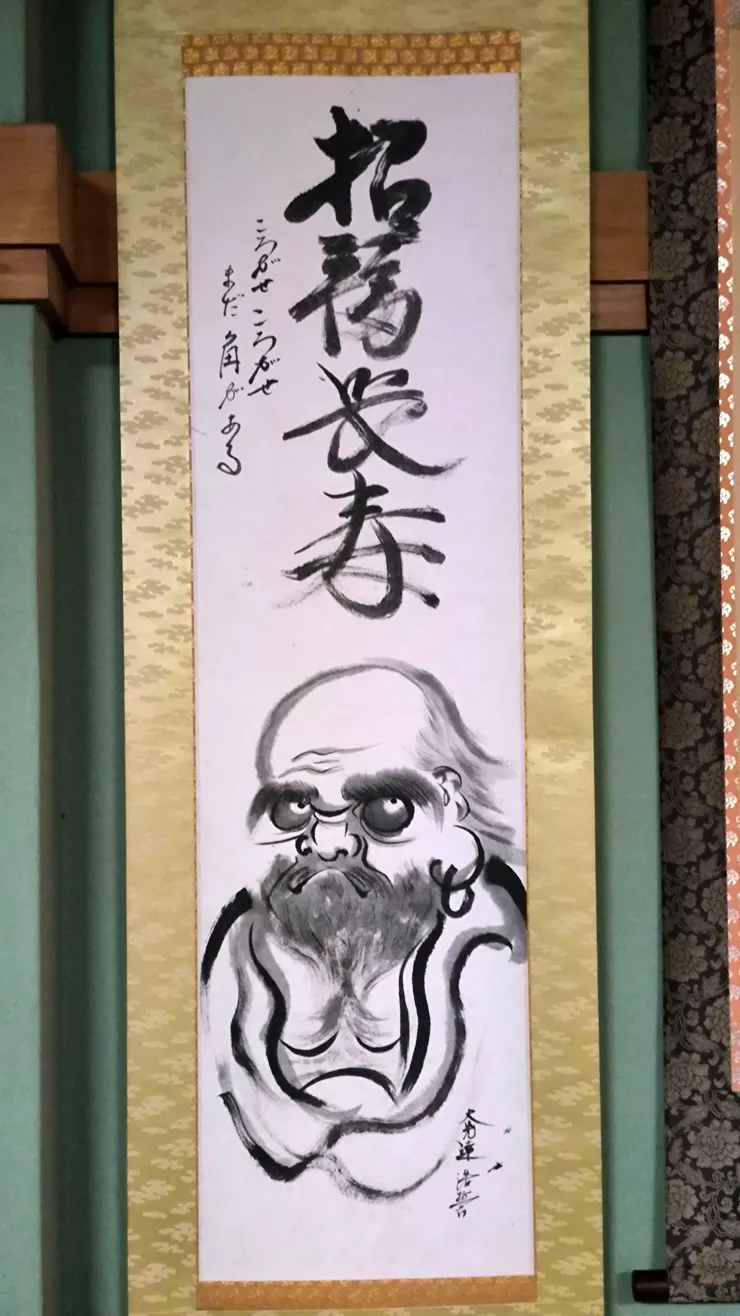 招福长寿
ころがせころがせ
まだ角がある